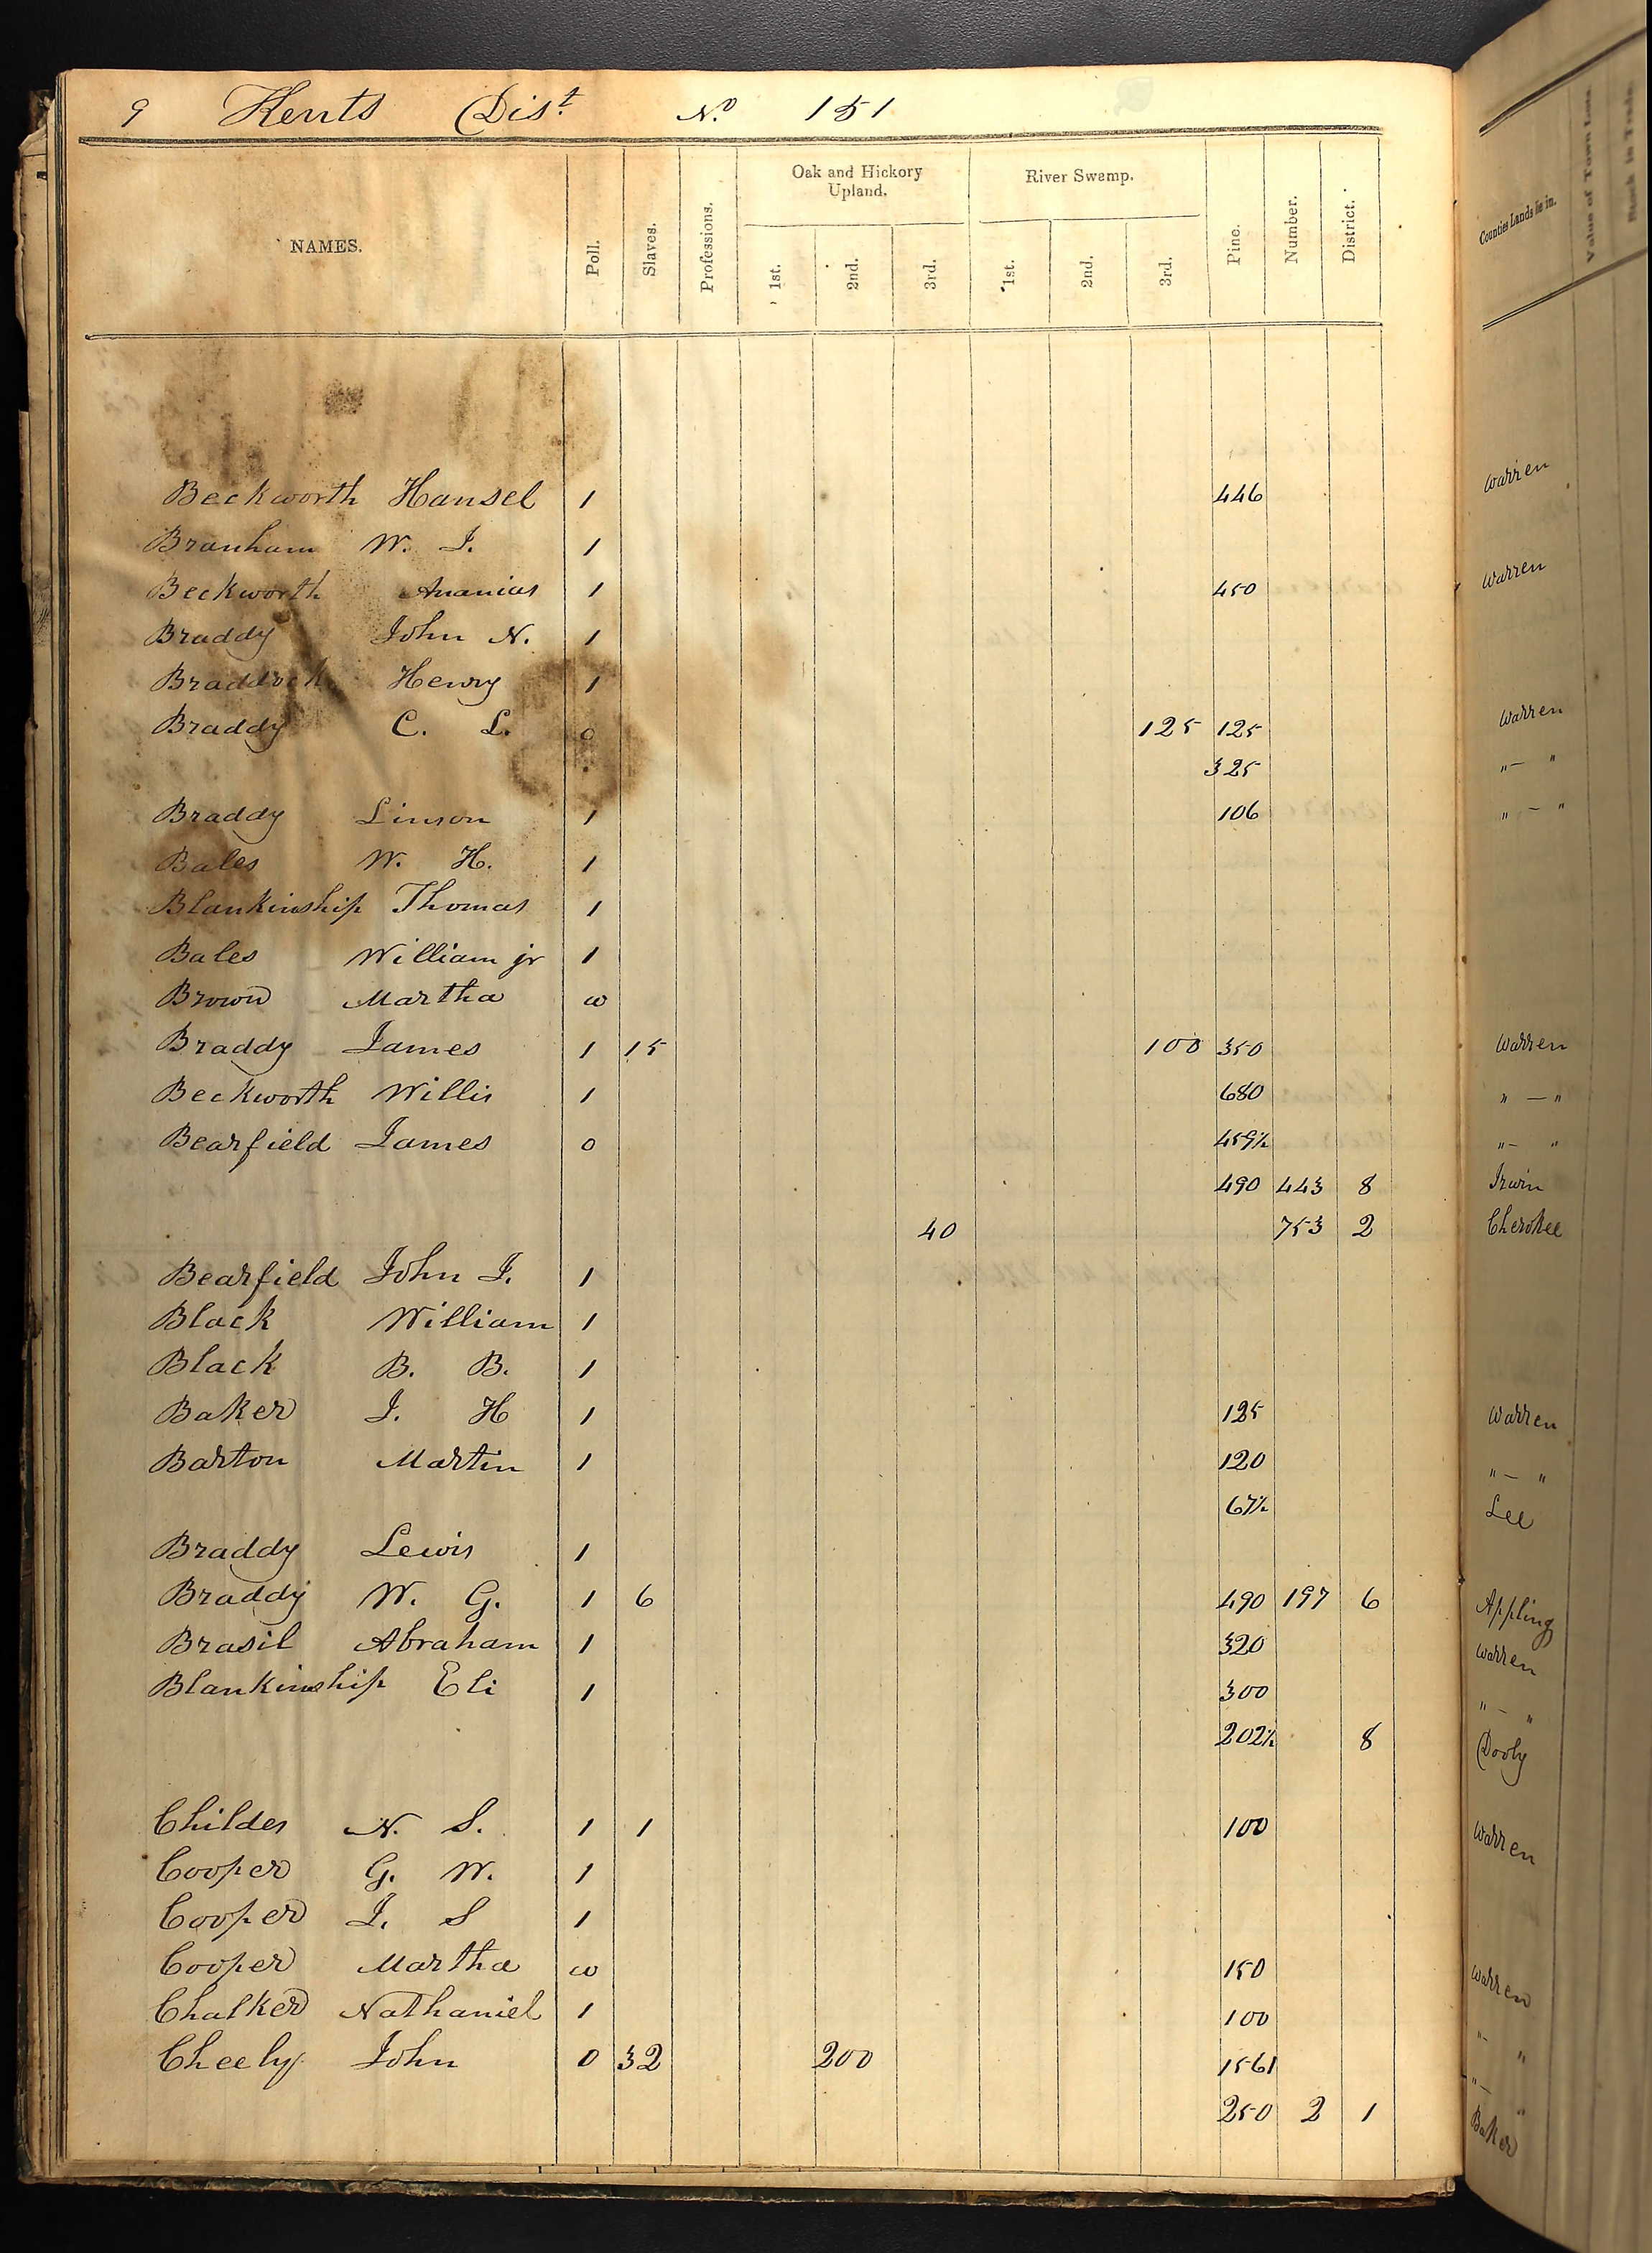 9 Kents Dist. No. 151
NAMES. Poll. Slaves. Professions. Oak and Hickory Upland. 1st. 2nd. 3rd. River Swamp. 1st. 2nd. 3rd. Pine. Number. District. Counties Lands lie in. Value of Town Lots. Stock in Trade.
Beckworth Hansel 1 446 Warren
Branham W. J. 1
Beckworth Ananias 1 450 Warren
Braddy John N. 1
Braddock Henry 1
Braddy C. L. 0 125 125 Warren
325 " — "
Braddy Linson 1 106 " — "
Bales W. H. 1
Blankinship Thomas 1
Bales William jr 1
Brown Martha w
Braddy James 1 15 100 350 Warren
Beckworth Willis 1 680 " — "
Bearfield James 0 459½ " — "
490 443 8 Irwin
40 753 2 Cherokee
Bearfield John J. 1
Black William 1
Black B. B. 1
Baker J. H 1 125 Warren
Barton Martin 1 120 " — "
67½ Lee
Braddy Lewis 1
Braddy W. G. 1 6 490 197 6 Appling
Brasil Abraham 1 320 Warren
Blankinship Eli 1 300 " — "
202½ 8 Dooly
Childes N. S. 1 1 100 Warren
Cooper G. W. 1
Cooper J. S 1
Cooper Martha w 150 Warren
Chalker Nathaniel 1 100 " — "
Cheely John 0 32 200 1561 " — "
250 2 1 Baker